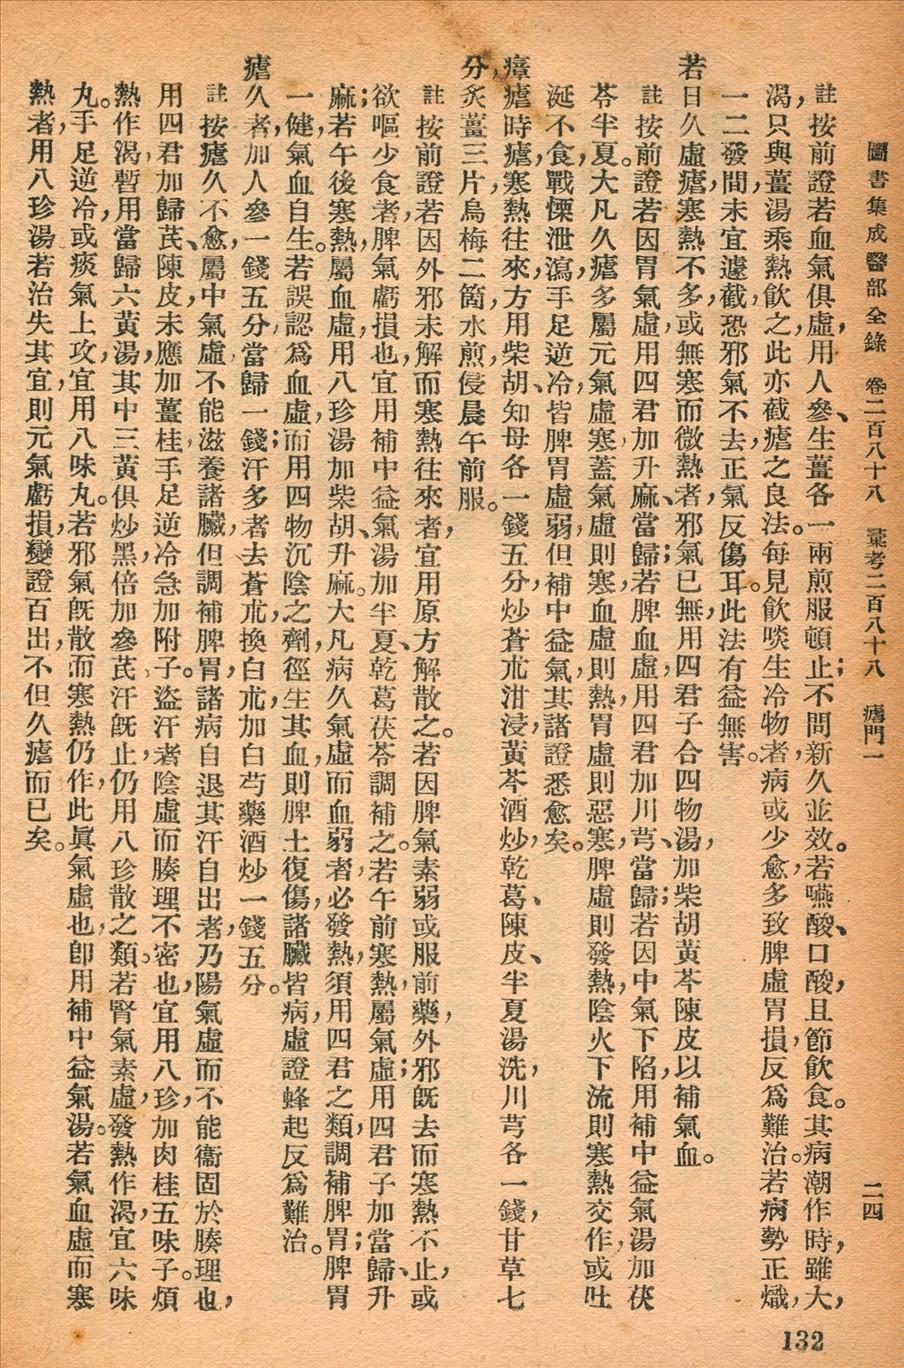 圖書集成醫部全錄　卷二百八十八　彙考二百八十八　瘧門一　二四
註　按前證若血氣俱虛，用人參、生薑各一兩煎服頓止；不問新久並效。若嚥酸、口酸，且節飲食。其病潮作時，雖大
渴，只與薑湯乘熱飲之，此亦截瘧之良法。每見飲啖生冷物者，病或少愈，多致脾虛胃損，反爲難治。若病勢正熾，
一二發間，未宜遽截，恐邪氣不去，正氣反傷耳。此法有益無害。
若日久虛瘧，寒熱不多，或無寒而微熱者，邪氣已無，用四君子合四物湯，加柴胡黃芩陳皮以補氣血。
註　按前證若因胃氣虛，用四君加升麻、當歸；若脾血虛，用四君加川芎、當歸；若因中氣下陷，用補中益氣湯加茯
苓半夏。大凡久瘧多屬元氣虛寒，蓋氣虛則寒，血虛則熱，胃虛則惡寒，脾虛則發熱，陰火下流則寒熱交作，或吐
涎不食，戰慄泄瀉，手足逆冷，皆脾胃虛弱，但補中益氣，其諸證悉愈矣。
瘴瘧時瘧，寒熱往來，方用柴胡、知母各一錢五分，炒蒼朮泔浸，黃芩酒炒，乾葛、陳皮、半夏湯洗，川芎各一錢，甘草七
分，炙薑三片，烏梅二箇，水煎，侵晨午前服。
註　按前證若因外邪未解而寒熱往來者，宜用原方解散之。若因脾氣素弱或服前藥，外邪旣去而寒熱不止，或
欲嘔少食者，脾氣虧損也，宜用補中益氣湯加半夏、乾葛茯苓調補之。若午前寒熱，屬氣虛；用四君子加當歸、升
麻；若午後寒熱，屬血虛，用八珍湯加柴胡、升麻。大凡病久氣虛而血弱者，必發熱，須用四君之類，調補脾胃；脾胃
一健，氣血自生。若誤認爲血虛，而用四物沉陰之劑，徑生其血，則脾土復傷，諸臟皆病，虛證蜂起，反爲難治。
瘧久者，加人參一錢五分，當歸一錢；汗多者，去蒼朮，換白朮，加白芍藥酒炒一錢五分。
註　按瘧久不愈，屬中氣虛不能滋養諸臟，但調補脾胃，諸病自退。其汗自出者，乃陽氣虛而不能衞固於腠理也，
用四君加歸芪、陳皮，未應加薑桂，手足逆冷急加附子。盜汗者，陰虛而腠理不密也，宜用八珍，加肉桂五味子。煩
熱作渴，暫用當歸六黃湯，其中三黃俱炒黑，倍加參芪，汗旣止，仍用八珍散之類。若腎氣素虛，發熱作渴，宜六味
丸。手足逆冷，或痰氣上攻，宜用八味丸。若邪氣旣散而寒熱仍作，此眞氣虛也，卽用補中益氣湯。若氣血虛而寒
熱者，用八珍湯若治失其宜，則元氣虧損，變證百出，不但久瘧而已矣。
132